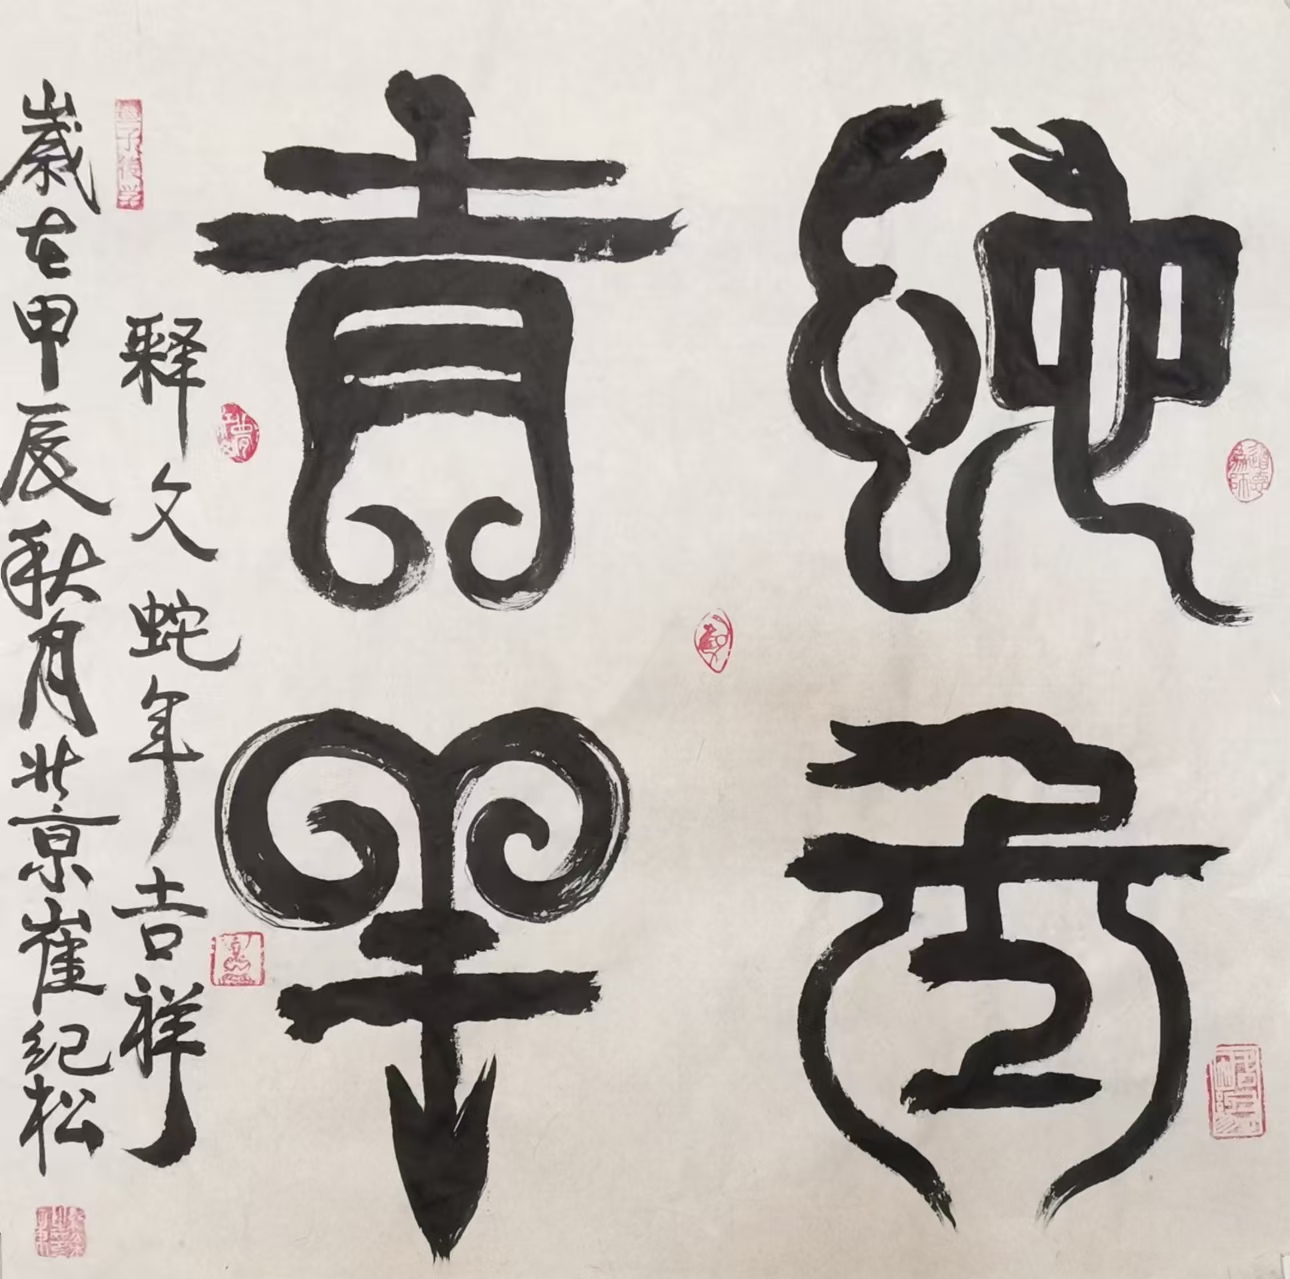 蛇年
吉羊
释文蛇年吉祥
歲在甲辰秋月北京崔纪松